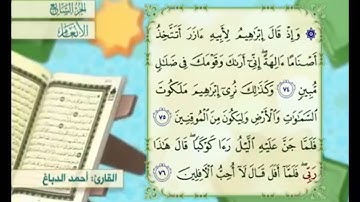 الجزء السابع
الأنعام
۞ وَإِذْ قَالَ إِبْرَٰهِيمُ لِأَبِيهِ ءَازَرَ أَتَتَّخِذُ
أَصْنَامًا ءَالِهَةً ۖ إِنِّىٓ أَرَىٰكَ وَقَوْمَكَ فِى ضَلَٰلٍ
مُّبِينٍ ٧٤ وَكَذَٰلِكَ نُرِىٓ إِبْرَٰهِيمَ مَلَكُوتَ
ٱلسَّمَٰوَٰتِ وَٱلْأَرْضِ وَلِيَكُونَ مِنَ ٱلْمُوقِنِينَ ٧٥
فَلَمَّا جَنَّ عَلَيْهِ ٱلَّيْلُ رَءَا كَوْكَبًا ۖ قَالَ هَٰذَا
رَبِّى ۖ فَلَمَّآ أَفَلَ قَالَ لَآ أُحِبُّ ٱلْءَافِلِينَ ٧٦
القارئ: أحمد الدباغ